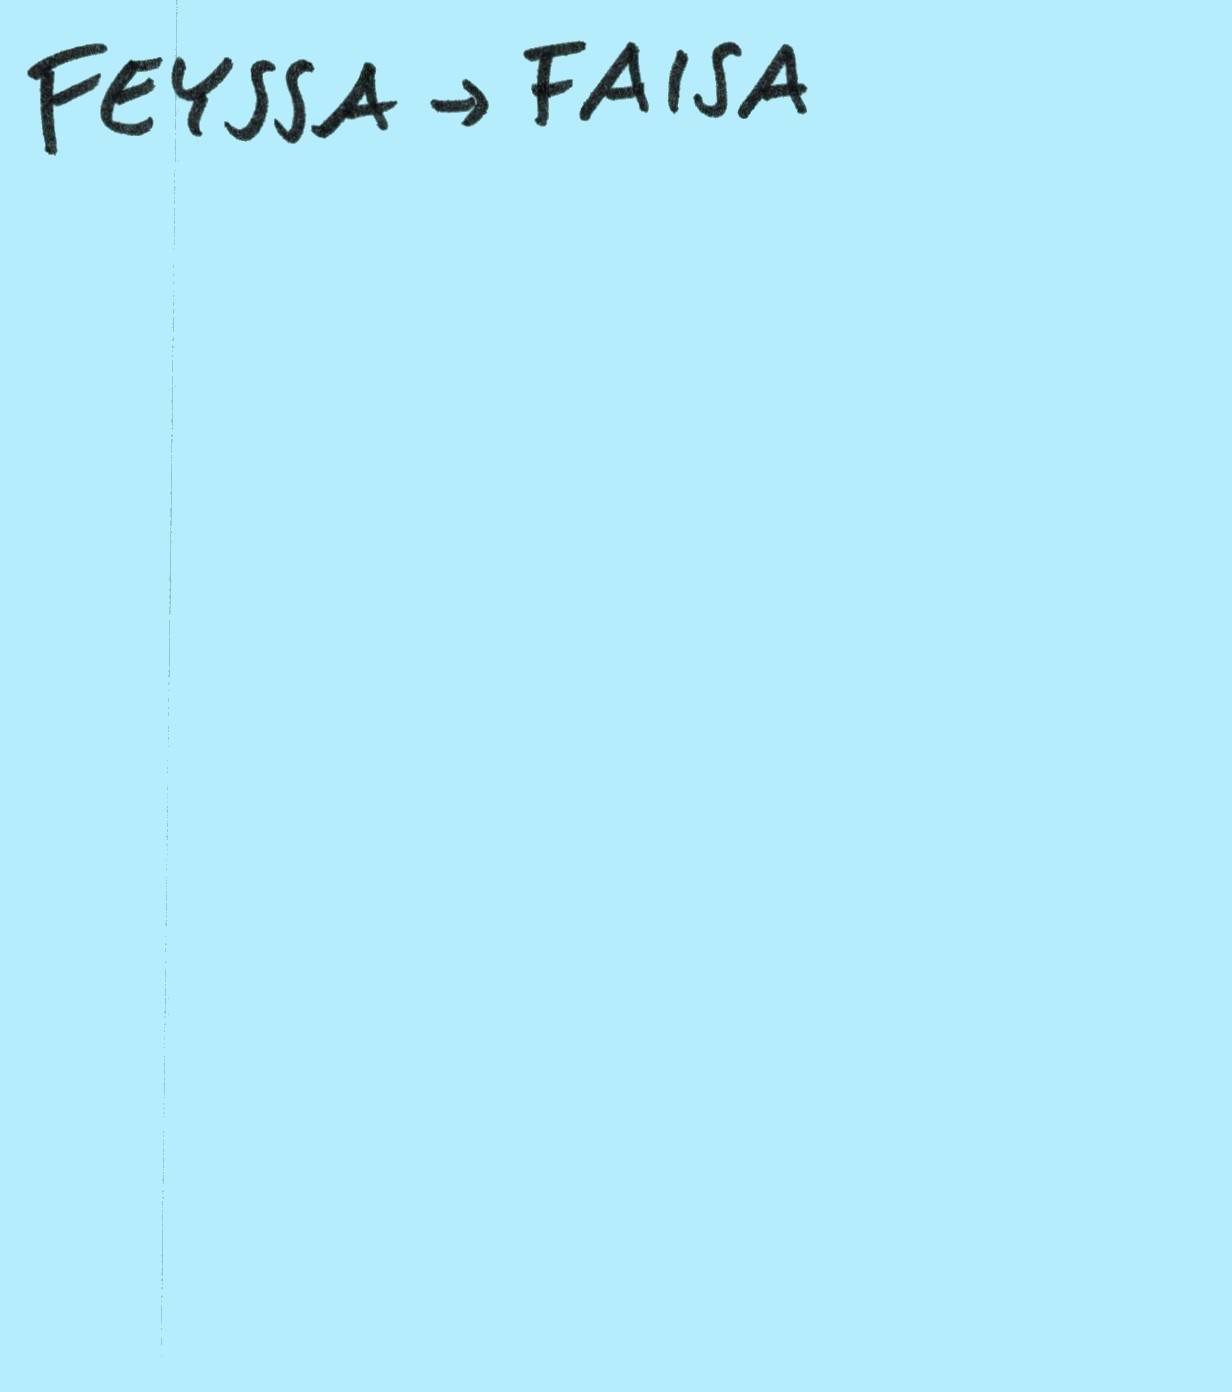 FEYSSA → FAISA